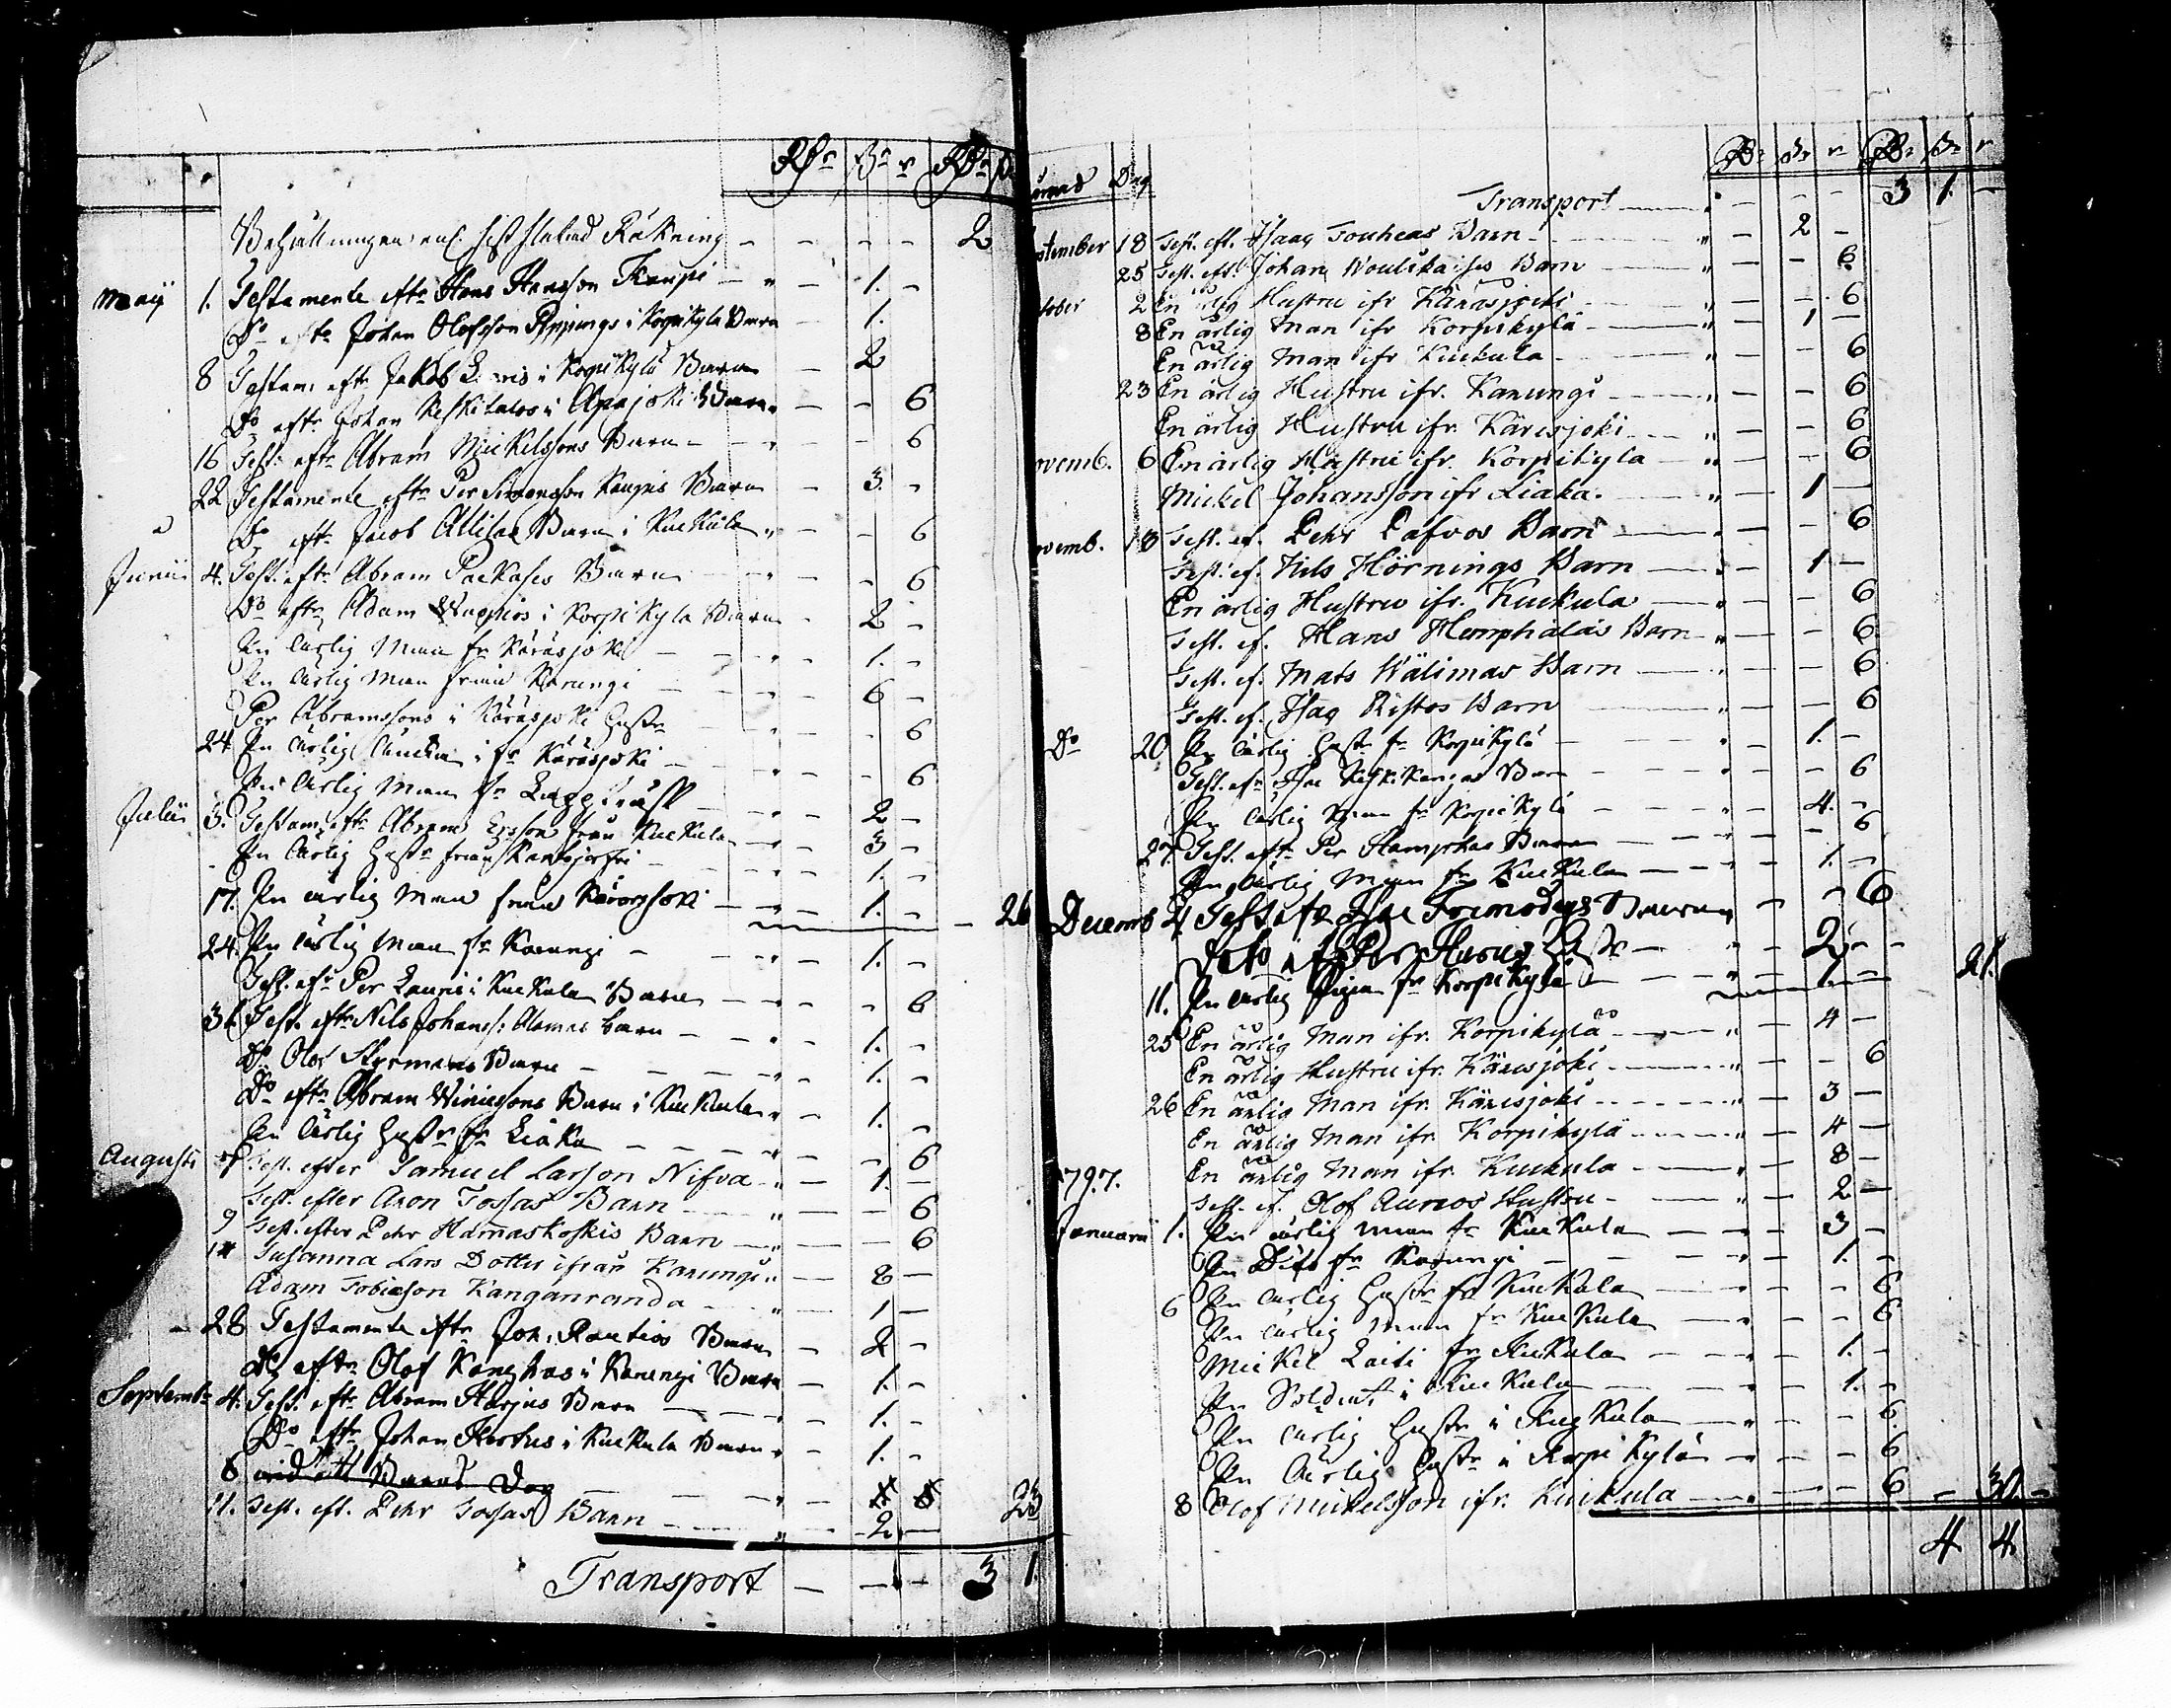 Rdr sr r Rdr s
Behållningen enl. sist slutad Räkning - - - - 2
Maij 1. Testamente eftr Hans Hansson Kaupi - " - 1. -
Do eftr Johan Olofsson Pippings i Korpikyla Barn - 1.
8 Testam: eftr Jakob Lauris i Korpikylä Barn - 2
Do eftr Johan Keskitalos i Alpajoki Barn - - 6
16 Test: eftr Abram Mickelssons Barn - " - - 6
22 Testamente eftr Per Simonsson Kaupis Barn - 3. -
Do eftr Jacob Allitas Barn i Kuckula " - - 6
Junii 4. Test. eftr Abram Packases Barn - " - - 6
Do eftr Adam Waapios i Korpikyla Barn - 2 -
En ärlig Man fr Käräsjoki - - " - 1. -
En ärlig Man från Karungi - " - 6 -
Per Abramssons i Käräsjoki Hustr - - 6
24. En ärlig i fr Käräsjoki - " - - 6
En ärlig Man fr Lappträsk - " - 2 -
Julii 3. Testam. eftr Abram Ersson från Kuckula " - 3 -
En ärlig Hustr från - " - 1. -
17. En ärlig Man från Käräsjoki - " - 1. - - 26
24. En ärlig Man fr Karungi - " - 1. -
Test. efr Per Lauris i Kuckula Barn - " - - 6
31. Test. eftr Nils Johanss: Alamas barn - " - 1. -
Do Olof Styrmans Barn - - " - 1. -
Do eftr Abram Winicssons Barn i Kuckula " - 1. -
En ärlig Hustr fr Liaka - - " - - 6
Augusti 7 Test. efter Samuel Larson Nifva - " - 1. -
Test. efter Aron Tossas Barn - " - - 6
9 Test. efter Pehr Hamaskoskis Barn - " - - 6
14 Susanna Lars Dotter ifrån Karungi " - 8 -
Adam Tobiæson Kanganranda - " - 1 -
28 Testamente eftr Joh. Rautios Barn - 2 -
Do eftr Olof Kanghas i Karungi Barn - 1. -
Septembr 4. Test. eftr Abram Harjus Barn - - 1. -
Do eftr Johan Hortus i Kuckula Barn " - 1. -
6 vid ett Barns Dop - - " -
11. Test. eft. Pehr Tossas Barn - " - 2 - 23
Transport - - - 3 1.
Dag Rdr sr r Rdr sr r
Transport - " - - - 3 1. -
tember 18 Test. eft. Isaac Touheas Barn - " - 2 -
25 Test. eft. Johan Barn - " - - 6
tober 2 En ärlig Hustru ifr Käräsjocki - " - - 6
8 En ärlig Man ifr Korpikylä - " - 1 -
En ärlig Man ifr Kuckula - " - - 6
23 En ärlig Hustru ifr. Karungi - " - - 6
En ärlig Hustru ifr. Käräsjoki - " - - 6
ovemb. 6 En ärlig Hustru ifr. Korpikyla - " - - 6
Mickel Johansson ifr Liaka. - " - 1 -
ovemb. 13 Test. ef. Pehr Pafvos Barn - " - - 6
Test. ef. Nils Hörnings Barn - " - 1 -
En ärlig Hustru ifr. Kuckula - " - - 6
Test. ef. Hans Hemphälas Barn " - - 6
Test. ef. Mats Wälimas Barn - " - - 6
Test. ef. Isaq Ristos Barn - " - - 6
Do 20 En ärlig Hustr fr Korpikylä - " - 1. -
Test. efr Isac Keskikangas Barn - " - - 6
En ärlig Man fr Korpikylä - " - 4. -
27. Test. eftr Per Hamphas Barn - " - - 6
En ärlig Man fr Kuckula - " - 1. -
Decemb 4 Test efr Isac Barn - - 6
Dito efr Per Hustr - " - 2 -
11. En ärlig Piga fr Korpikyla - " - 1 - - 21.
25 En ärlig Man ifr. Korpikylä - " - 4 -
En ärlig Hustru ifr. Käräsjoki - " - - 6
26 En ärlig Man ifr. Käräsjoki - " - 3 -
En ärlig Man ifr. Korpikylä - " - 4 -
En ärlig Man ifr. Kuckula - " - 8 -
1797. Test. ef. Olof Aunos Hustru - " - 2 -
Januarii 1. En ärlig Man fr Kuckula - " - 3 -
En Dito fr Karungi - " - 1. -
En ärlig Hustr fr Kuckula - " - - 6
6 En ärlig Man fr Kuckula - " - - 6
Mickel Laiti fr Kuckula - " - 1. -
En Soldat i Kuckula - " - 1. -
En ärlig Hustr i Kuckula - " - - 6
En ärlig Hustr i Korpikylä - " - - 6
8 Olof Mickelsson ifr. Kuckula - " - - 6 - 30. -
4 4.